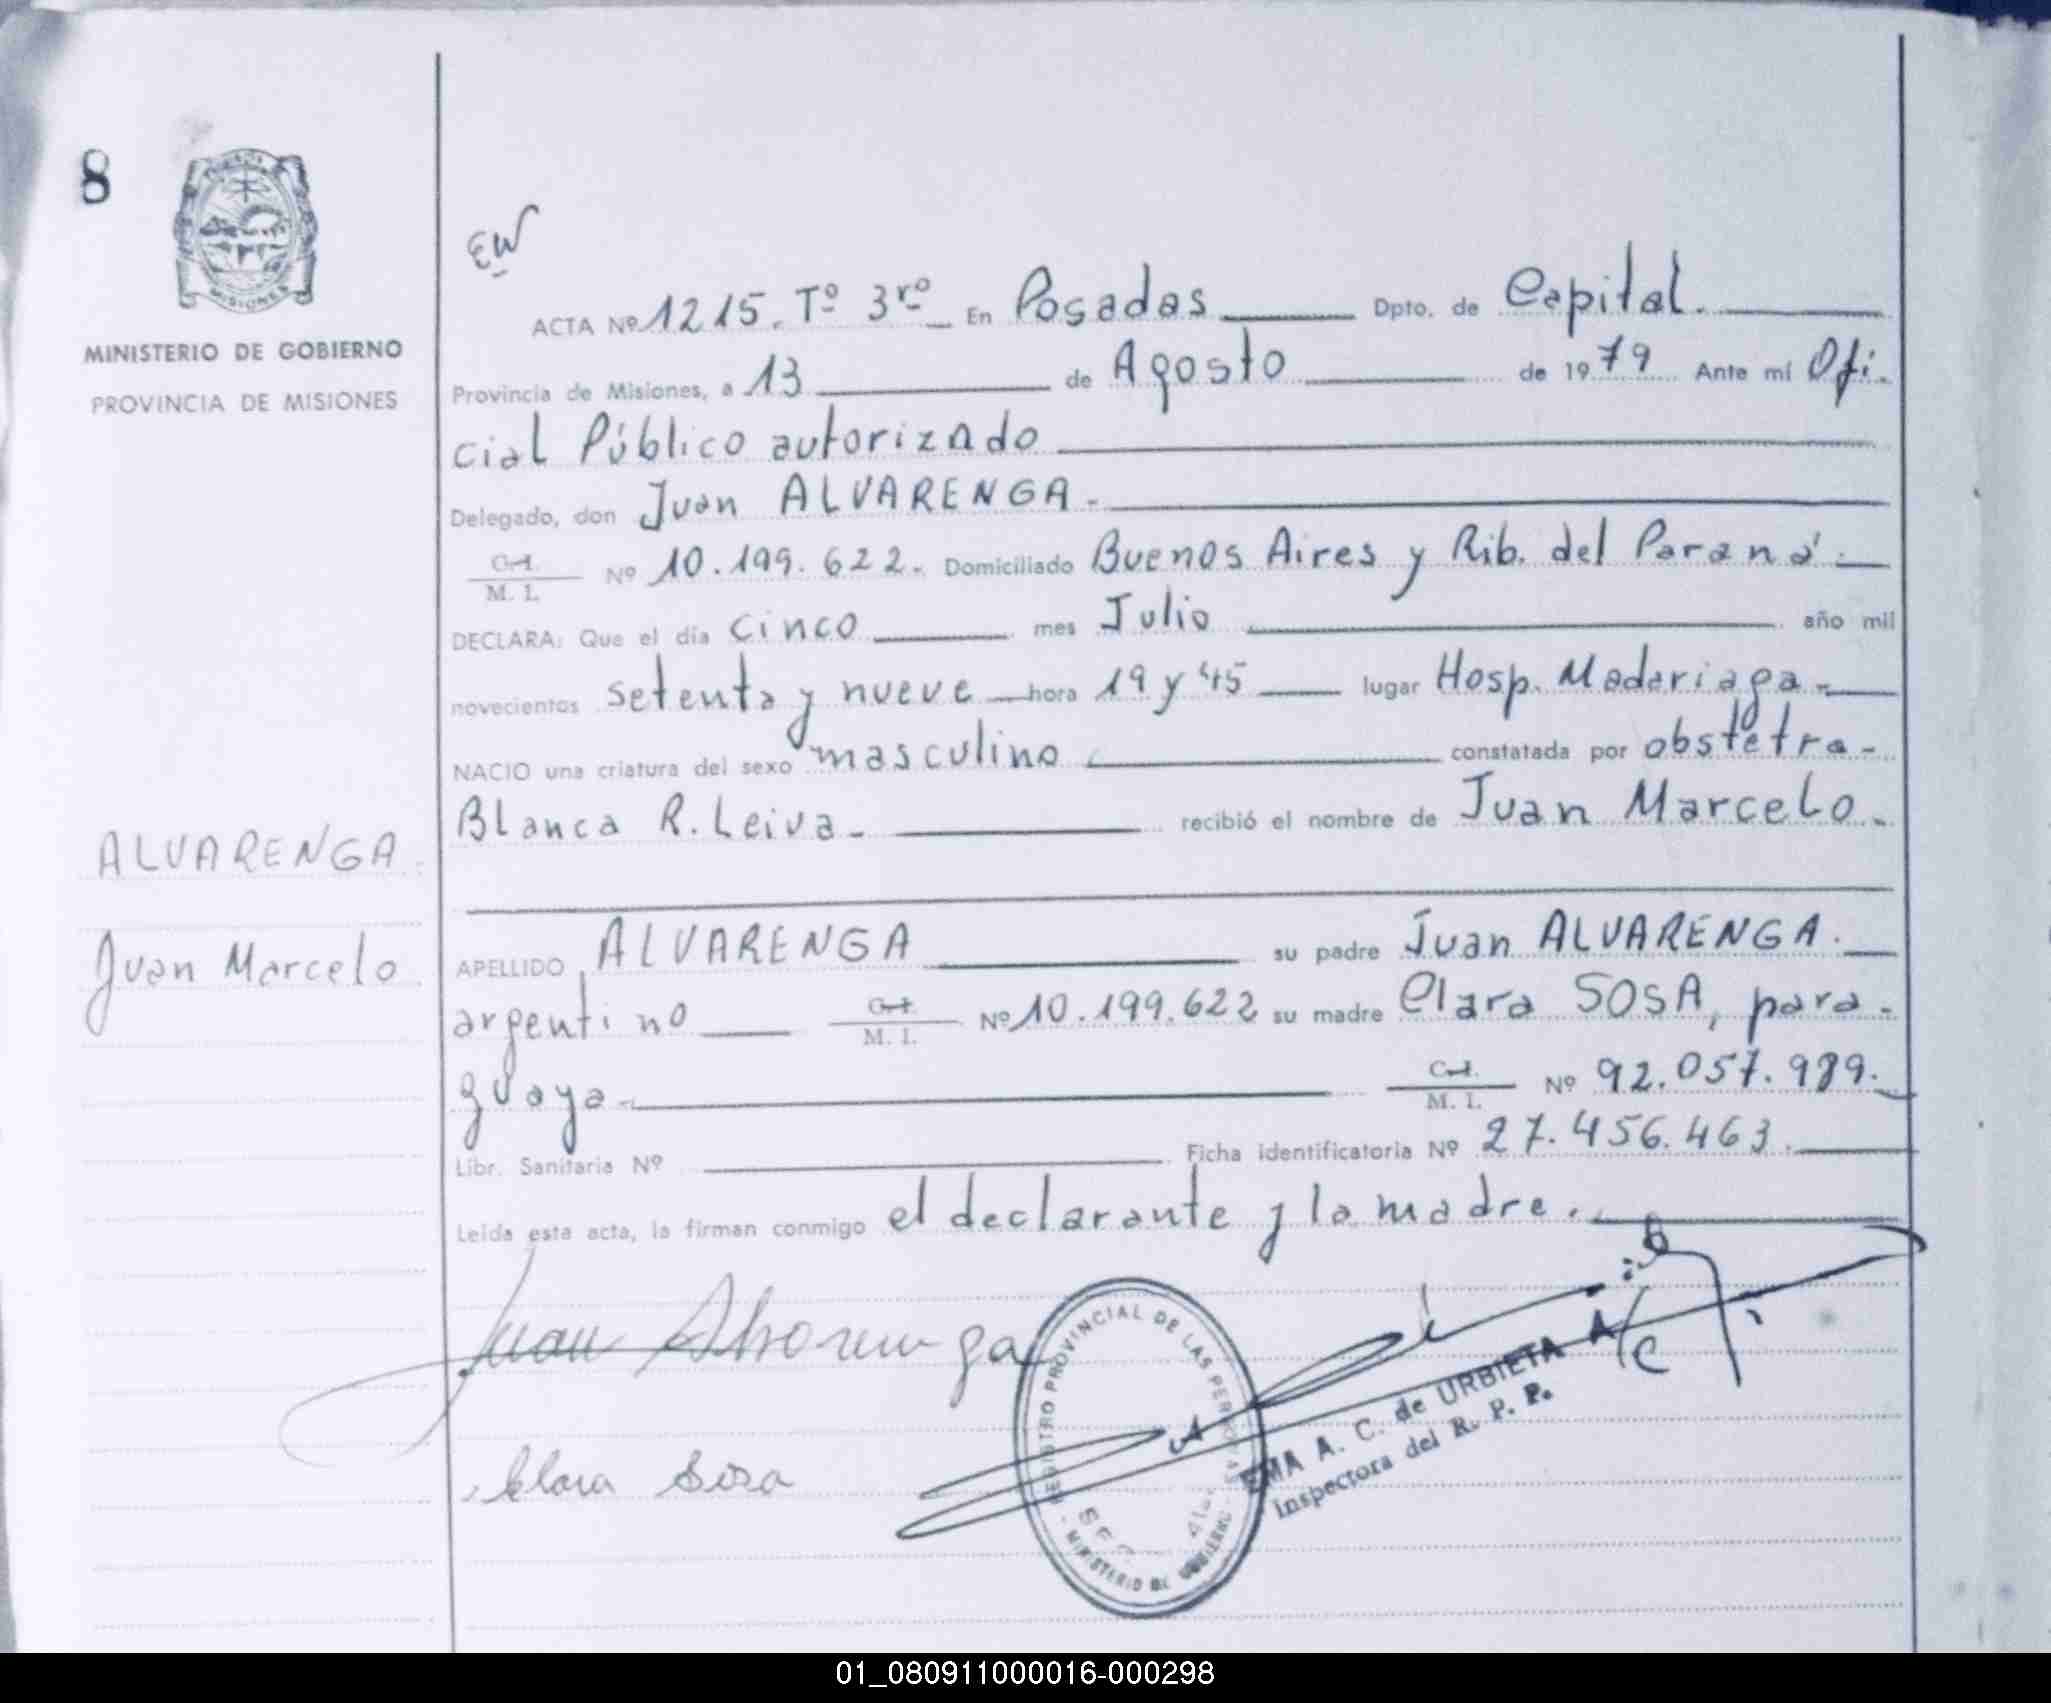 8
PROVINCIA
MISIONES
MINISTERIO DE GOBIERNO
PROVINCIA DE MISIONES
ALVARENGA
Juan Marcelo
EW
ACTA Nº 1215. Tº 3ro En Posadas Dpto. de Capital.
Provincia de Misiones, a 13 de Agosto de 1979 Ante mí Ofi.
cial Público autorizado
Delegado, don Juan ALVARENGA.
C.I. M. I. Nº 10.199.622. Domiciliado Buenos Aires y Rib. del Paraná.
DECLARA: Que el día cinco mes Julio año mil
novecientos setenta y nueve hora 19 y 45 lugar Hosp. Madariaga.
NACIO una criatura del sexo masculino constatada por obstetra-
Blanca R. Leiva- recibió el nombre de Juan Marcelo.
APELLIDO ALVARENGA su padre Juan ALVARENGA.
argentino C.I. M. I. Nº 10.199.622 su madre Clara SOSA, para-
guaya. C.I. M. I. Nº 92.057.989.
Libr. Sanitaria Nº Ficha identificatoria Nº 27.456.463.
Leída esta acta, la firman conmigo el declarante y la madre.
Juan Alvarenga
Clara Sosa
REGISTRO PROVINCIAL DE LAS PERSONAS
MINISTERIO DE GOBIERNO
EMA A. C. de URBIETA A/C
Inspectora del R. P. P.
01_080911000016-000298